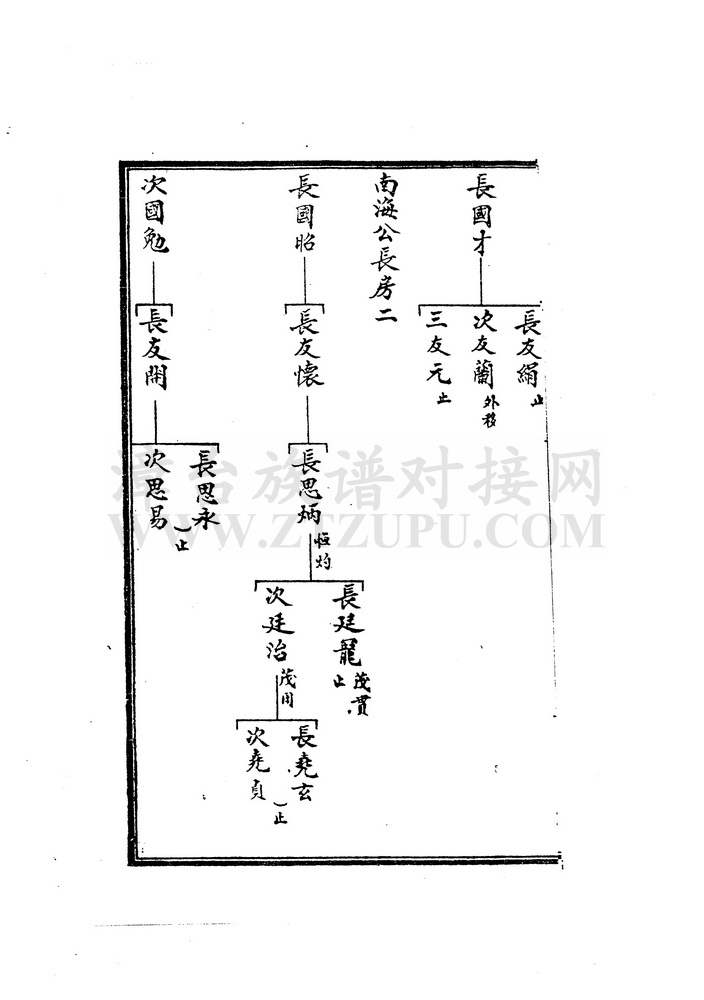 長國才
長友絹
止
次友蘭
外移
三友元
止
南海公長房二
長國昭
長友懷
長思炳
恒灼
長廷龍
茂貫
止
次廷治
茂用
長堯玄
次堯貞
止
次國勉
長友開
長思永
次思易
止
族谱对接网
WWW.ZTZUPU.COM